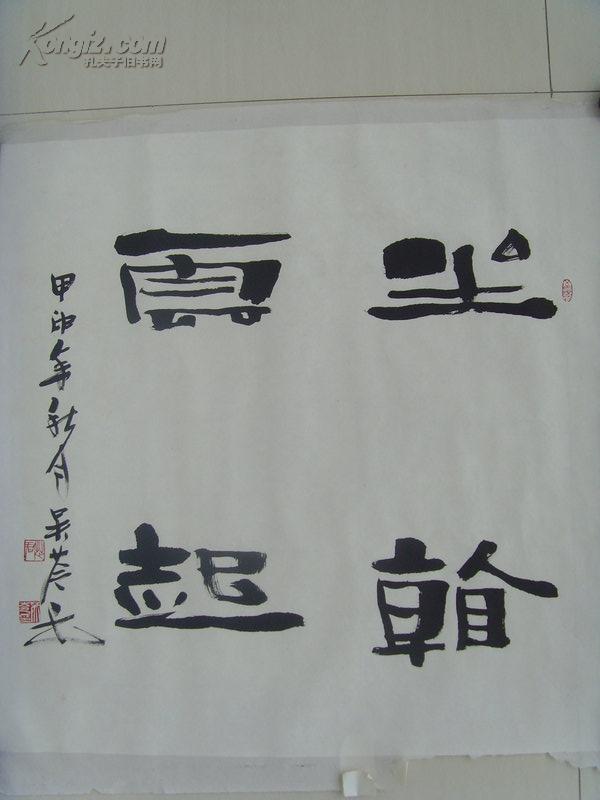 Kongfz.com
孔夫子旧书网
坐看
雲起
甲申年秋月吴